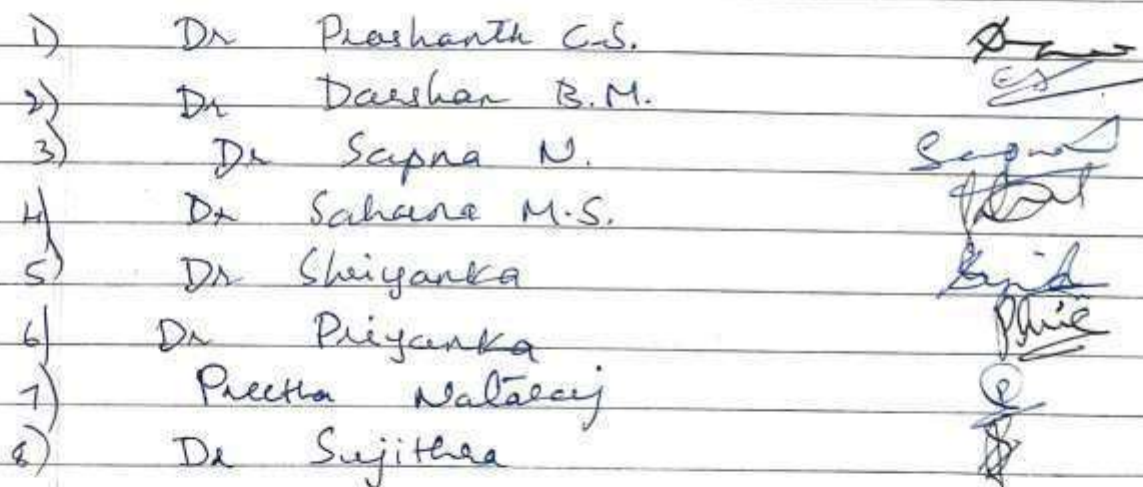 1) Dr Prashanth C.S.
2) Dr Darshan B.M.
3) Dr Sapna N. Sapna
4) Dr Sahana M.S.
5) Dr Shriyanka
6) Dr Priyanka
7) Preetha Nataraj
8) Dr Sujithra